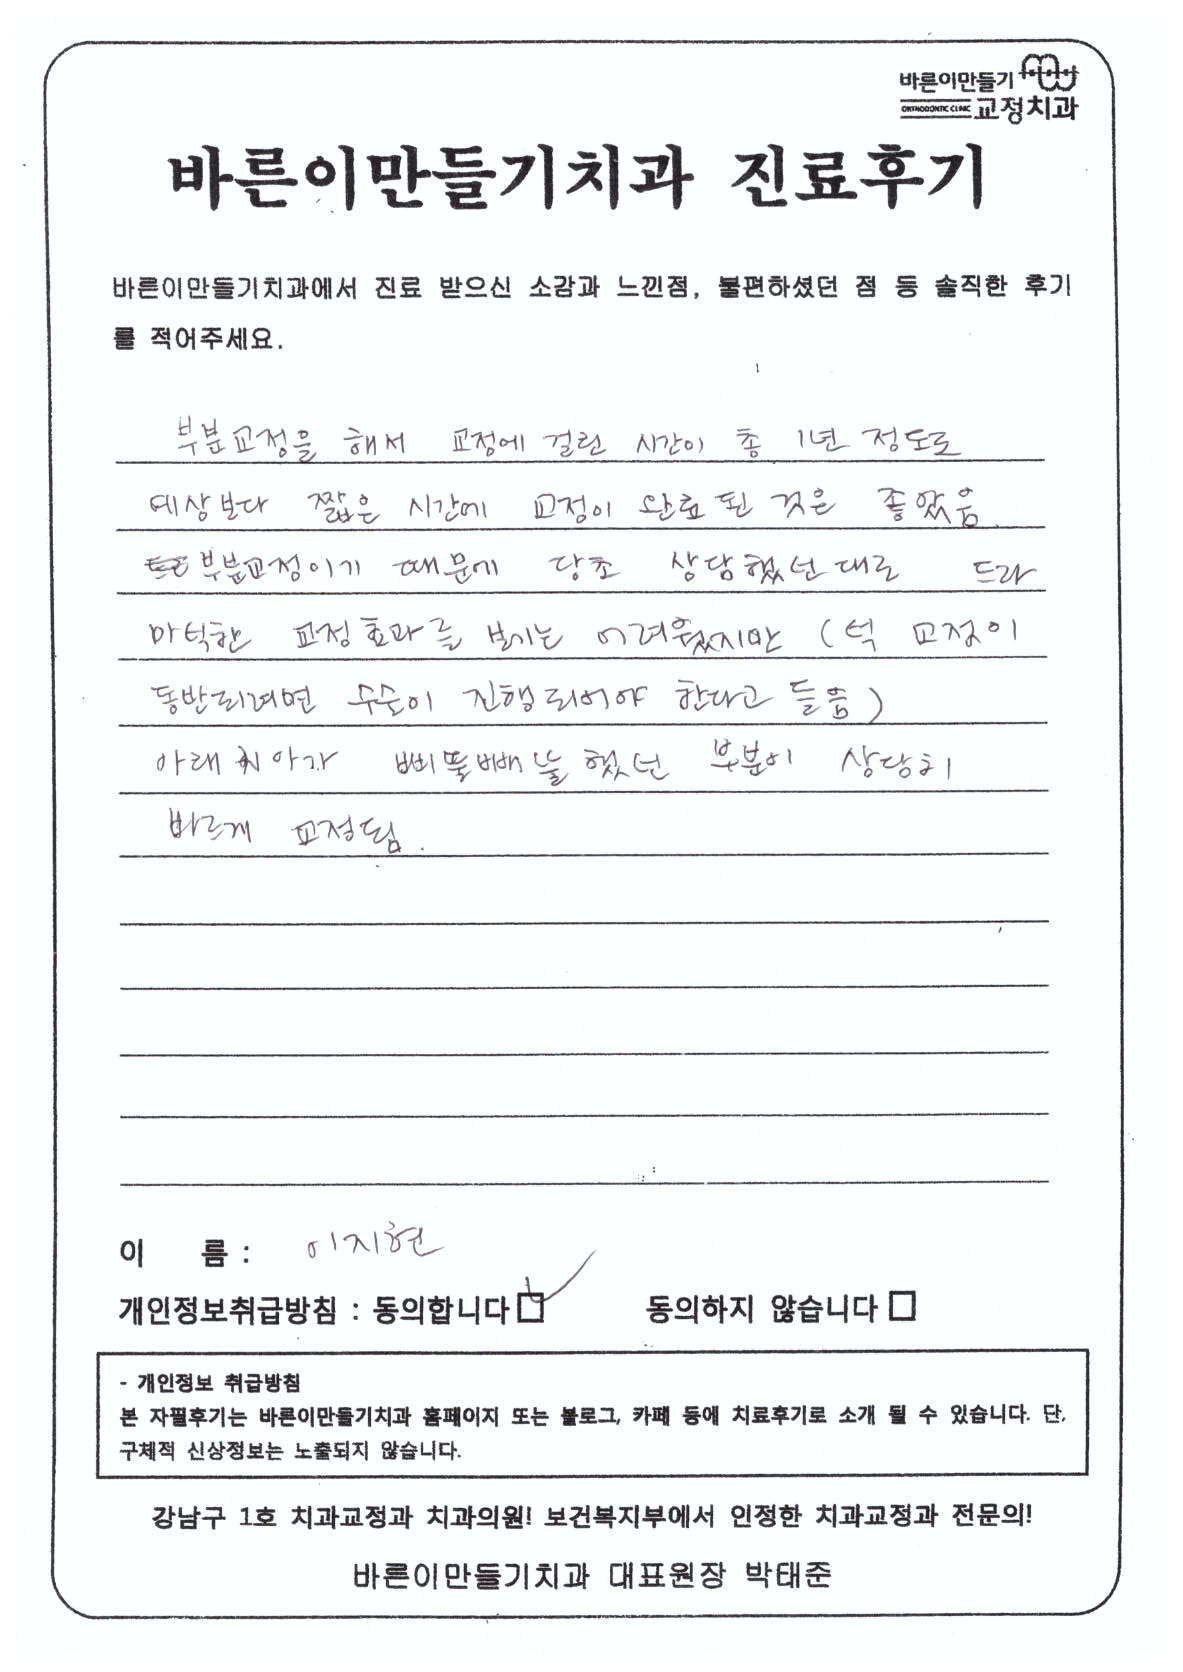 바른이만들기
ORTHODONTIC CLINIC 교정치과
바른이만들기치과 진료후기
바른이만들기치과에서 진료 받으신 소감과 느낀점, 불편하셨던 점 등 솔직한 후기
를 적어주세요.
부분교정을 해서 교정에 걸린 시간이 총 1년 정도로
예상보다 짧은 시간에 교정이 완료된 것은 좋았음.
부분교정이기 때문에 당초 상담했던대로 드라
마틱한 교정효과를 보기는 어려웠지만 (턱 교정이
동반되려면 수술이 진행되어야 한다고 들음)
아래 치아가 삐뚤빼뚤 했던 부분이 상당히
바르게 교정됨.
이 름 : 이지현
개인정보취급방침 : 동의합니다 동의하지 않습니다
- 개인정보 취급방침
본 자필후기는 바른이만들기치과 홈페이지 또는 블로그, 카페 등에 치료후기로 소개 될 수 있습니다. 단,
구체적 신상정보는 노출되지 않습니다.
강남구 1호 치과교정과 치과의원! 보건복지부에서 인정한 치과교정과 전문의!
바른이만들기치과 대표원장 박태준